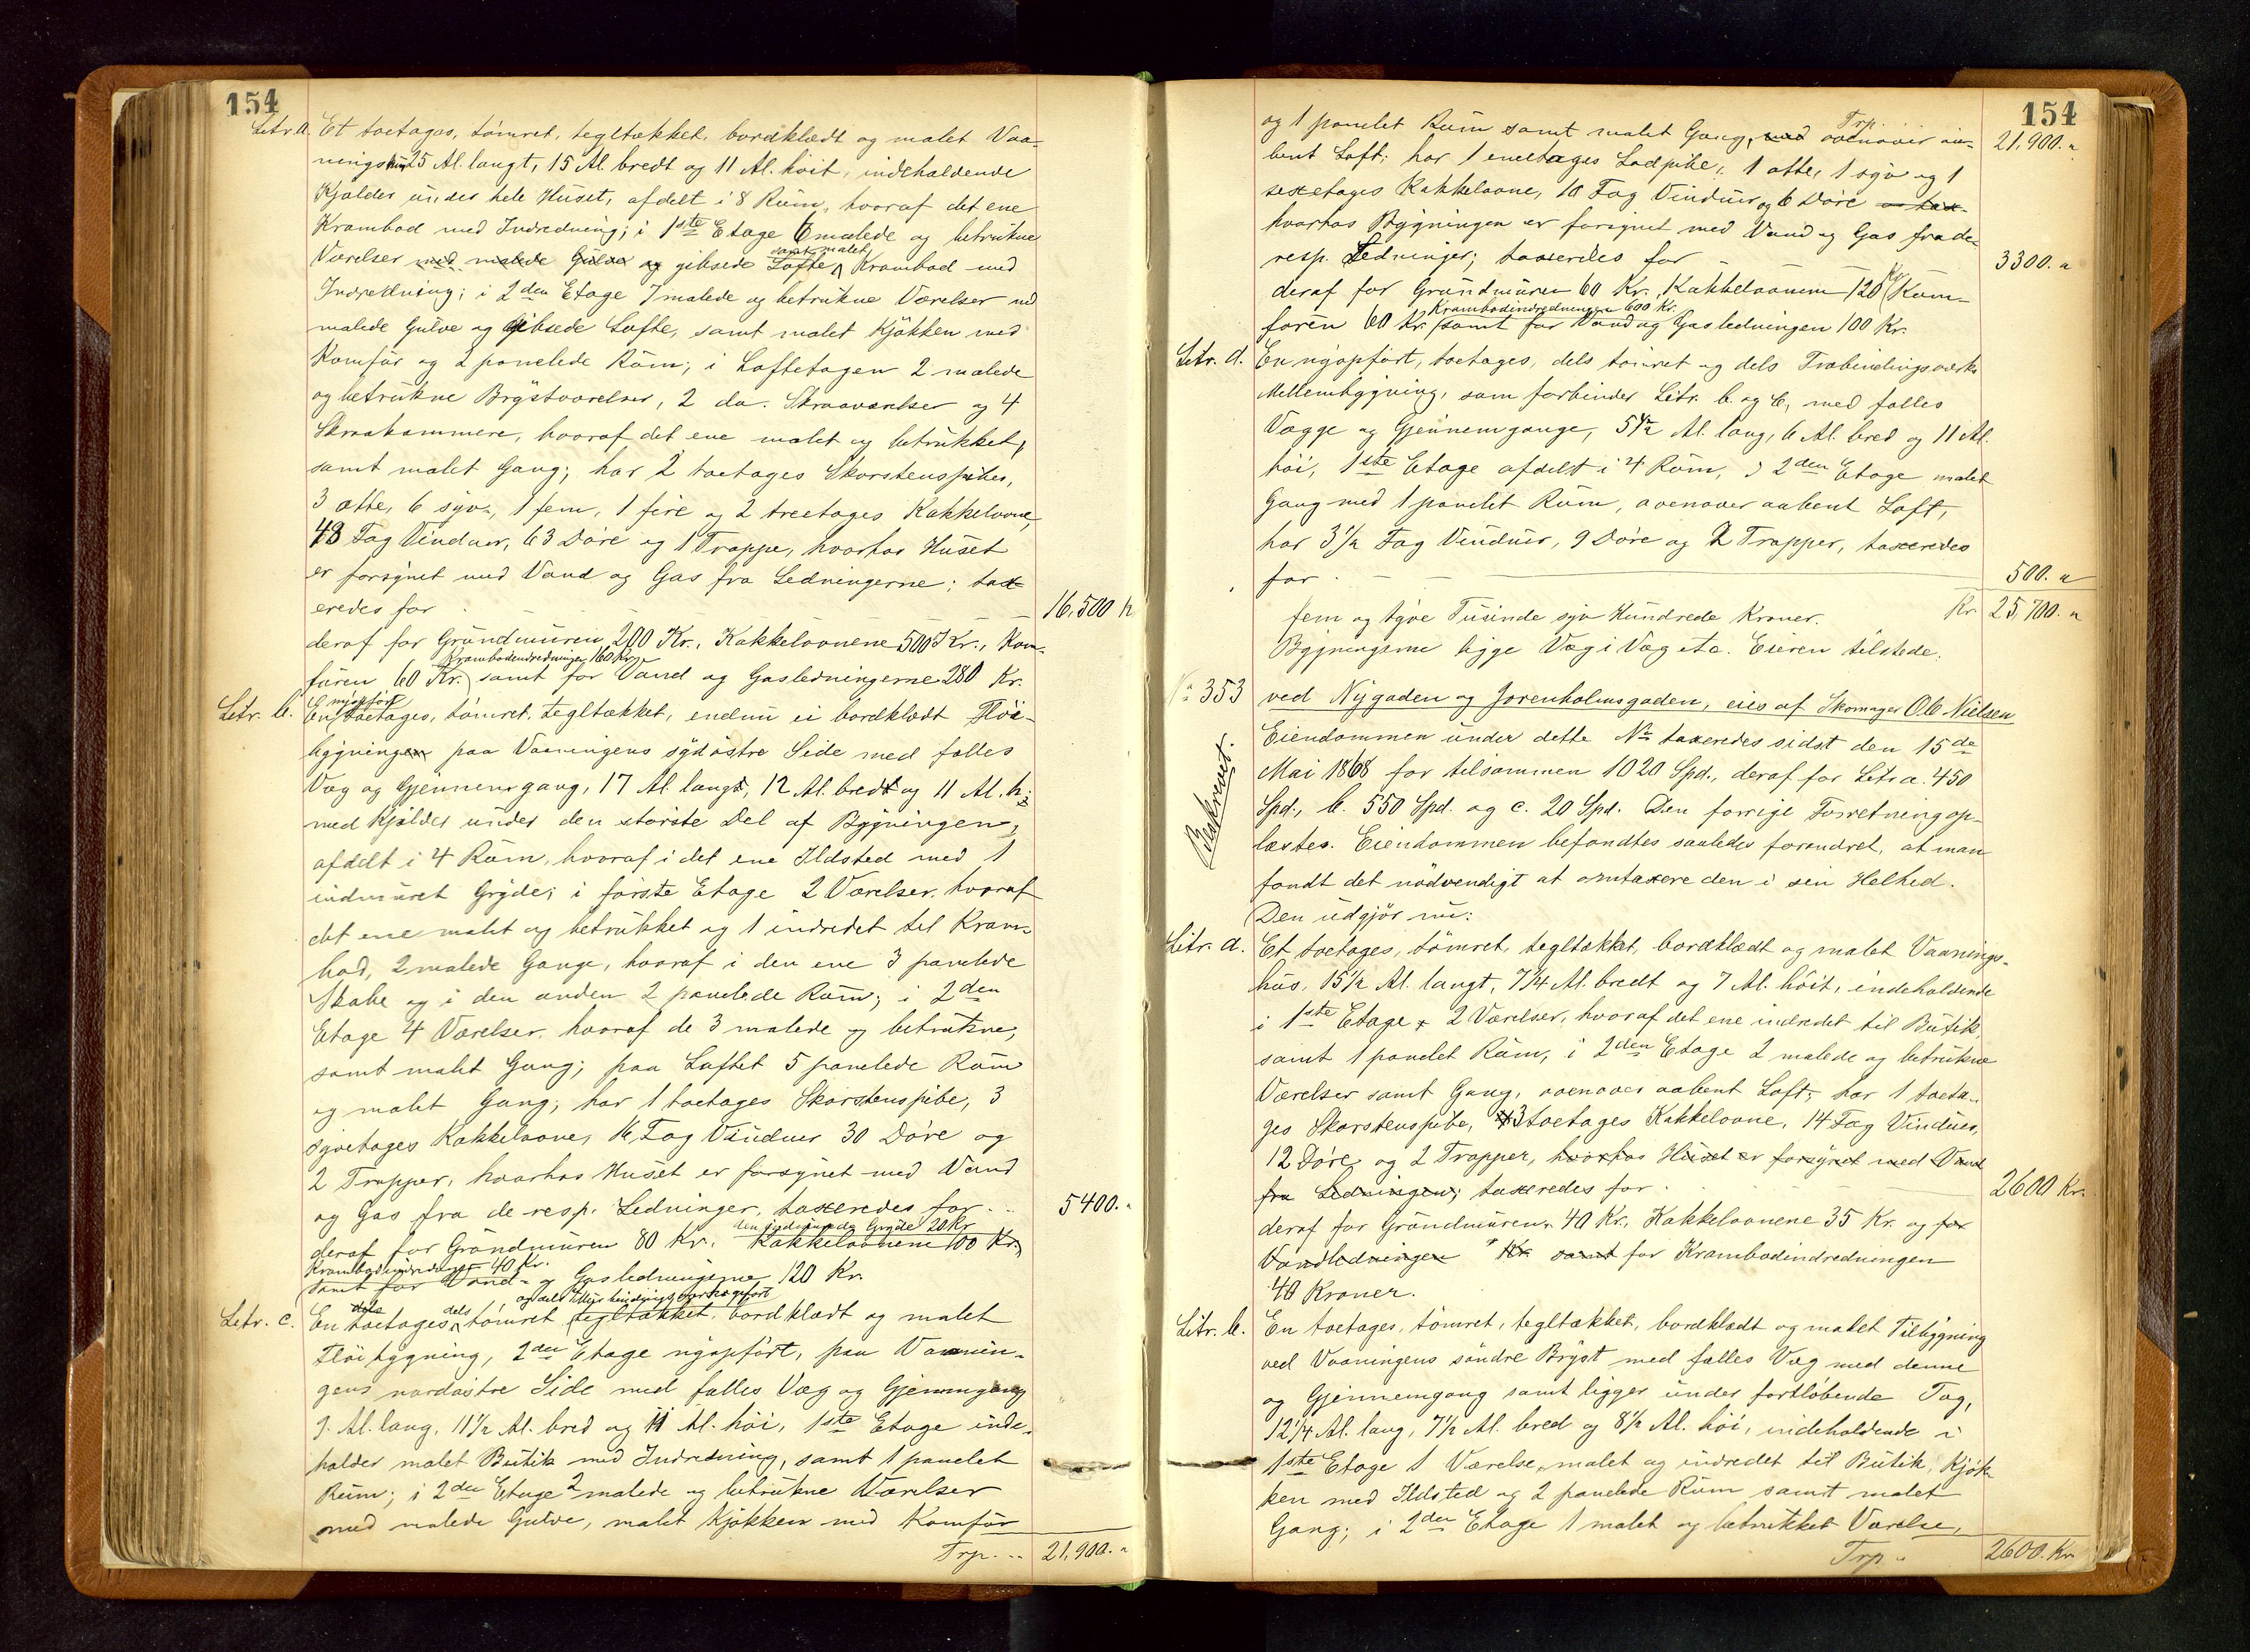 154
Litr. a. Et toetages, tømret, tegltækket, bordklædt og malet Vaa-
ningshus 25 Al. langt, 15 Al. bredt og 11 Al. høit, indeholdende
Kjælder under hele Huset, afdelt i 8 Rum, hvoraf det ene
Krambod med Indredning; i 1ste Etage 6 malede og betrukne
Værelser med malede Gulve og gibsede Lofte, samt malet Krambod med
Indredning; i 2den Etage 7 malede og betrukne Værelser med
malede Gulve og gibsede Lofte, samt malet Kjøkken med
Komfur og 2 panelede Rum; i Loftetagen 2 malede
og betrukne Brystværelser, 2 do. Skraaværelser og 4
Skraakammere, hvoraf det ene malet og betrukket,
samt malet Gang; har 2 toetages Skorstenspiber,
3 otte, 6 syv-, 1 fem, 1 fire og 2 treetages Kakkelovne,
48 Fag Vinduer, 63 Døre og 1 Trappe, hvorhos Huset
er forsynet med Vand og Gas fra Ledningerne; tax-
eredes for 16,500 Kr
deraf for Grundmuren 200 Kr., Kakkelovnene 500 Kr., Kom-
furen 60 Kr. Krambodindredninger 160 Kr. samt for Vand og Gasledningerne 280 Kr.
Litr. b. En nyopført toetages, tømret, tegltækket, endnu ei bordklædt Fløi-
bygningen paa Vaaningens sydøstre Side med fælles
Væg og Gjennemgang, 17 Al. langt, 12 Al. bredt og 11 Al. h.;
med Kjælder under den største Del af Bygningen,
afdelt i 4 Rum, hvoraf i det ene Ildsted med 1
indmuret Gryde; i første Etage 2 Værelser, hvoraf
det ene malet og betrukket og 1 indredet til Kram-
bod, 2 malede Gange, hvoraf i den ene 3 panelede
Skabe og i den anden 2 panelede Rum; i 2den
Etage 4 Værelser, hvoraf de 3 malede og betrukne,
samt malet Gang; paa Loftet 5 panelede Rum
og malet Gang; har 1 toetages Skorstenspibe, 3
syvetages Kakkelovne, 16 Fag Vinduer 30 Døre og
2 Trapper, hvorhos Huset er forsynet med Vand
og Gas fra de resp. Ledninger, taxeredes for 5400. "
deraf for Grundmuren 80 Kr. den indmurede Gryde 20 Kr Kakkelovnene 100 Kr,
Krambodindredningen 40 Kr. samt for Vand- og Gasledningerne 120 Kr.
Litr. c. En dels toetages, dels tømret og dels Murbindingsværk opført tegltækket, bordklædt og malet
Fløibygning, 2den Etage nyopført, paa Vaanin-
gens nordøstre Side med fælles Væg og Gjennemgang
9 Al. lang, 11 1/2 Al. bred og 11 Al. høi, 1ste Etage inde-
holder malet Butik med Indredning, samt 1 panelet
Rum; i 2den Etage 2 malede og betrukne Værelser
med malede Gulve, malet Kjøkken med Komfur
Trp. 21,900. "
154
Trp. 21,900. "
og 1 panelet Rum samt malet Gang, med ovenover aa-
bent Loft; har 1 eneetages Lodpibe, 1 otte, 1 syv og 1
sexetages Kakkelovne, 10 Fag Vinduer og 6 Døre – tax-
hvorhos Bygningen er forsynet med Vand og Gas fra de
resp. Ledninger; taxeredes for 3300. "
deraf for Grundmuren 60 Kr., Kakkelovnene 120 Kr Kom-
furen 60 Kr. Krambodindredningen 600 Kr. samt for Vand og Gasledningen 100 Kr.
Litr. d. En nyopført, toetages, dels tømret og dels Træbindingsværks
Mellembygning, som forbinder Litr. b. og c, med fælles
Vægge og Gjennemgange, 5 1/2 Al. lang, 6 Al. bred og 11 Al.
høi, 1ste Etage afdelt i 4 Rum, i 2den Etage malet
Gang med 1 panelet Rum, ovenover aabent Loft,
har 3 1/2 Fag Vinduer, 9 Døre og 2 Trapper, taxeredes
for 500. "
fem og tyve Tusinde syv Hundrede Kroner. Kr. 25,700. "
Bygningerne ligge Væg i Væg etc. Eieren tilstede.
No 353 ved Nygaden og Jorenholmsgaden, eies af Skomager O. C. Nielsen
Beskrevet.
Eiendommen under dette No taxeredes sidst den 15de
Mai 1868 for tilsammen 1020 Spd., deraf for Litr a. 450
Spd., b. 550 Spd. og c. 20 Spd. Den forrige Forretning op-
læstes. Eiendommen befandtes saaledes forandret, at man
fandt det nødvendigt at omtaxere den i sin Helhed.
Den udgjør nu:
Litr. a. Et toetages, tømret, tegltækket, bordklædt og malet Vaanings-
hus, 15 1/2 Al. langt, 7 1/4 Al. bredt og 7 Al. høit, indeholdende
i 1ste Etage 2 Værelser, hvoraf det ene indredet til Butik,
samt 1 panelet Rum, i 2den Etage 2 malede og betrukne
Værelser samt Gang, ovenover aabent Loft; har 1 toeta-
ges Skorstenspibe, 3 toetages Kakkelovne, 14 Fag Vinduer,
12 Døre og 2 Trapper, hvorhos Huset er forsynet med Vand
fra Ledningen; taxeredes for 2600 Kr.
deraf for Grundmuren 40 Kr., Kakkelovnene 35 Kr. og for
Vandledningen " Kr. samt for Krambodindredningen
40 Kroner.
Litr. b. En toetages, tømret, tegltækket, bordklædt og malet Tilbygning
ved Vaaningens søndre Bryst med fælles Væg med denne
og Gjennemgang samt ligger under fortløbende Tag,
12 1/4 Al. lang, 7 1/2 Al. bred og 8 1/2 Al. høi, indeholdende i
1ste Etage 1 Værelse, malet og indredet til Butik, Kjøk-
ken med Ildsted og 2 panelede Rum samt malet
Gang; i 2den Etage 1 malet og betrukket Værelse,
Trp. 2600. Kr.